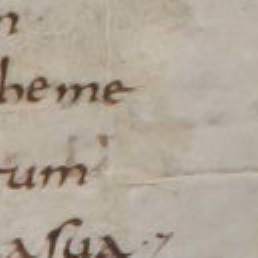 n
heme
tum
asua